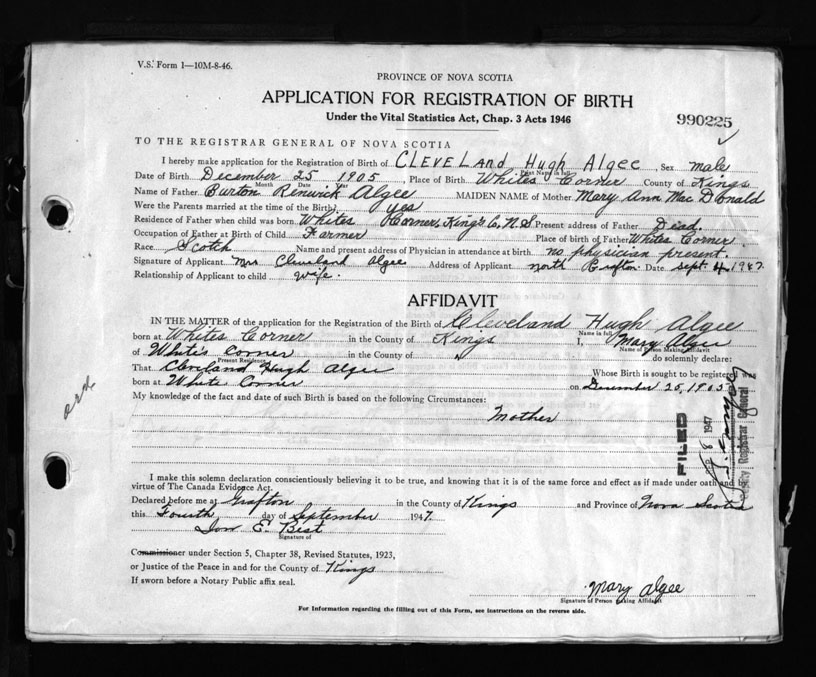 V.S. Form 1—10M-8-46.
PROVINCE OF NOVA SCOTIA
APPLICATION FOR REGISTRATION OF BIRTH
Under the Vital Statistics Act, Chap. 3 Acts 1946
990225
TO THE REGISTRAR GENERAL OF NOVA SCOTIA
I hereby make application for the Registration of Birth of CLEVELAnd Hugh Algee Sex male
Print Name in full
Date of Birth December 25 1905, Place of Birth Whites Corner County of Kings
Month Date Year
Name of Father Burton Renwick Algee MAIDEN NAME of Mother Mary Ann Mac Donald
Were the Parents married at the time of the Birth? yes
Residence of Father when child was born Whites Corner, King's Co, N S Present address of Father Dead.
Occupation of Father at Birth of Child Farmer Place of birth of Father Whites Corner
Race Scotch Name and present address of Physician in attendance at birth no physician present.
Signature of Applicant Mrs Cleveland Algee Address of Applicant north Grafton Date Sept 4, 1947.
Relationship of Applicant to child wife.
AFFIDAVIT
IN THE MATTER of the application for the Registration of the Birth of Cleveland Hugh Algee
Name in full
born at Whites Corner in the County of Kings I, Mary Algee
Name of Person Making Affidavit
of Whites Corner in the County of " do solemnly declare:
Present Residence
That Cleveland Hugh Algee Whose Birth is sought to be registered was
born at White Corner on December 25, 1905
My knowledge of the fact and date of such Birth is based on the following Circumstances:
Mother
FILED
8 1947
Deputy Registrar General
I make this solemn declaration conscientiously believing it to be true, and knowing that it is of the same force and effect as if made under oath and by
virtue of The Canada Evidence Act.
Declared before me at Grafton in the County of Kings and Province of Nova Scotia
this Fourth day of September 1947.
E. Best
Signature of
Commissioner under Section 5, Chapter 38, Revised Statutes, 1923,
or Justice of the Peace in and for the County of Kings
If sworn before a Notary Public affix seal.
Mary Algee
Signature of Person Making Affidavit
For Information regarding the filling out of this Form, see instructions on the reverse side.